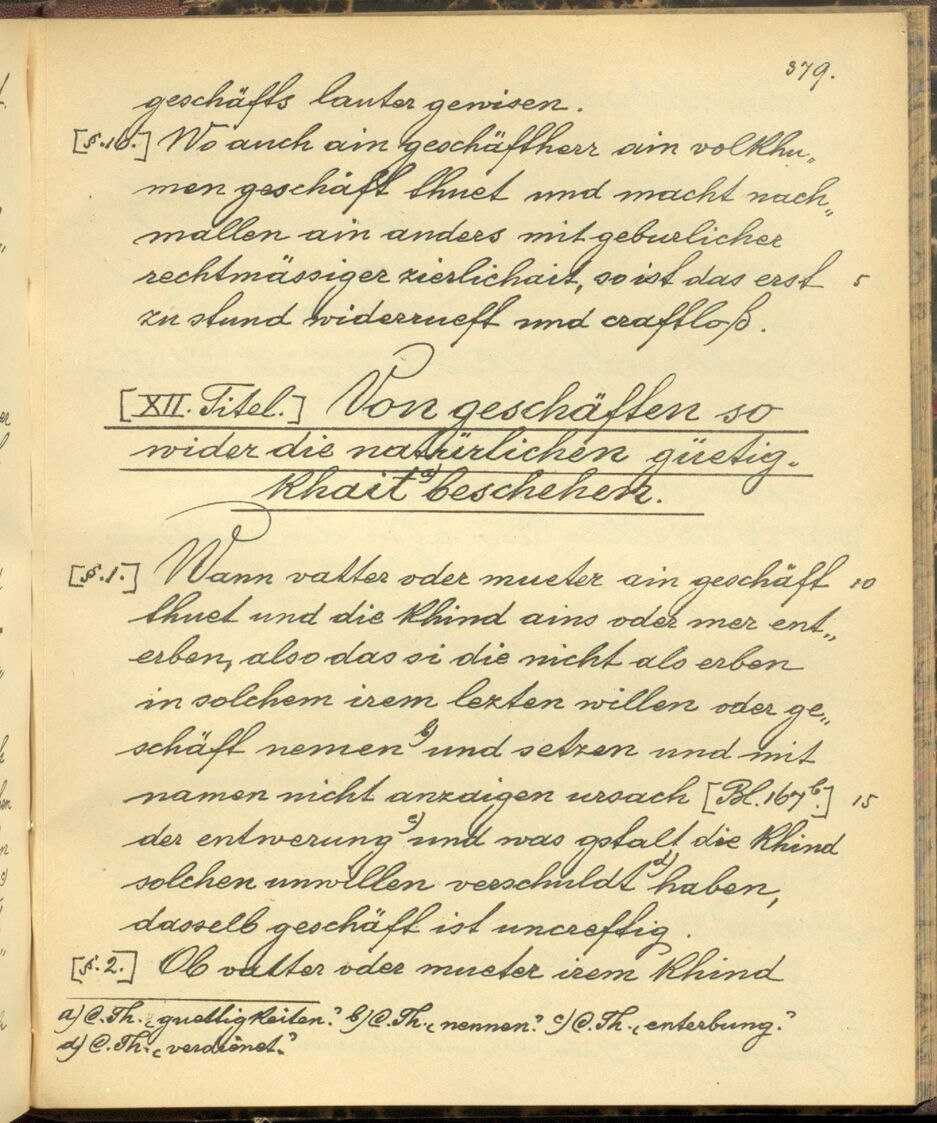 379.
geschäfts lauter gewisen.
[§.16.] Wo auch ain geschäftherr ain volkhu„
men geschäft thuet und macht nach„
mallen ain anders mit geburlicher
rechtmässiger zierlichait, so ist das erst 5
zu stund widerrueft und craftloß.
[XII. Titel.] Von geschäften so
wider die natürlichen güetig-
khait a) beschehen.
[§.1.] Wann vatter oder mueter ain geschäft 10
thuet und die khind ains oder mer ent„
erben, also das si die nicht als erben
in solchem irem lezten willen oder ge„
schäft nemen b) und setzen und mit
namen nicht anzaigen ursach [Bl. 167 b.] 15
der entwerung c) und was gstalt die khind
solchen unwillen verschuldt d) haben,
dasselb geschäft ist uncreftig.
[§.2.] Ob vatter oder mueter irem khind
a) C. Th. „guettigkeiten." b) C. Th. „nennen." c) C. Th. „enterbung."
d) C. Th. „verdienet."